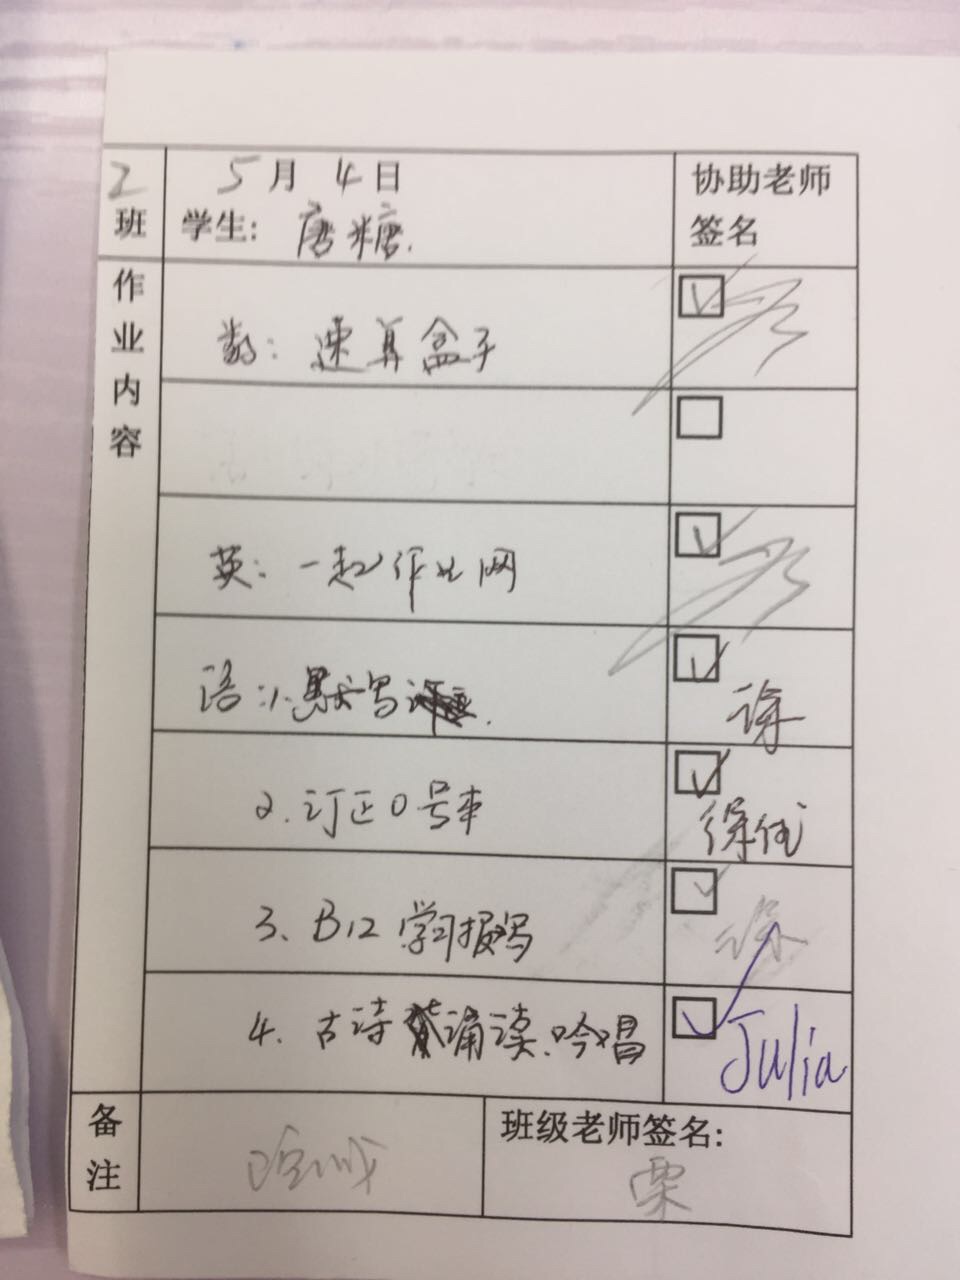 2班
5月4日
学生: 唐糖.
协助老师
签名
作业内容
数: 速算盒子
英: 一起作业网
语: 1. 默写
2. 订正0号本
3. B12 学习报写
徐
4. 古诗 诵读.吟唱
Julia
备注
班级老师签名:
栗